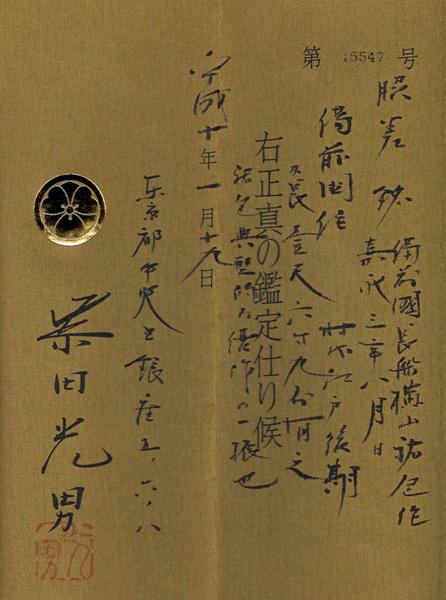 第 15547 号
脇差 銘 備前國長船横山祐包作
嘉永三年八月日
備前国住 時代江戸後期
刃長壹尺六寸九分有之
右正真の鑑定仕り候
祐包典型的な優作の一振也
平成十年一月十九日
東京都中央区銀座五ノ六ノ八
柴田光男
光男